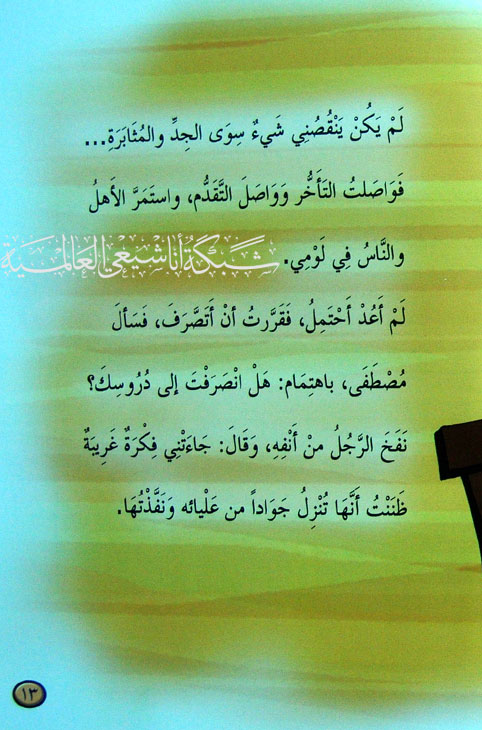 لَمْ يَكُنْ يَنْقُصُنِي شَيْءٌ سِوَى الجِدِّ والمُثَابَرَةِ...
فَوَاصَلتُ التَأَخُّر وَوَاصَلَ التَّقَدُّم، واستَمَرَّ الأَهلُ
والنَّاسُ فِي لَوْمِي.
شبكة أنا شيعي العالمية
لَمْ أَعُدْ أَحْتَمِلُ، فَقَرَّرتُ أنْ أَتَصَّرَفَ، فَسَألَ
مُصْطَفَى، باهتِمَام: هَلْ انْصَرَفْتَ إلى دُرُوسِكَ؟
نَفَخَ الرَّجُلُ منْ أَنْفِهِ، وَقَالَ: جَاءَتْنِي فِكْرَةٌ غَرِيبَةٌ
ظَنَنْتُ أَنَّهَا تُنْزِلُ جَوَاداً من عَلْيائه وَنَفَّذْتُهَا.
١٣